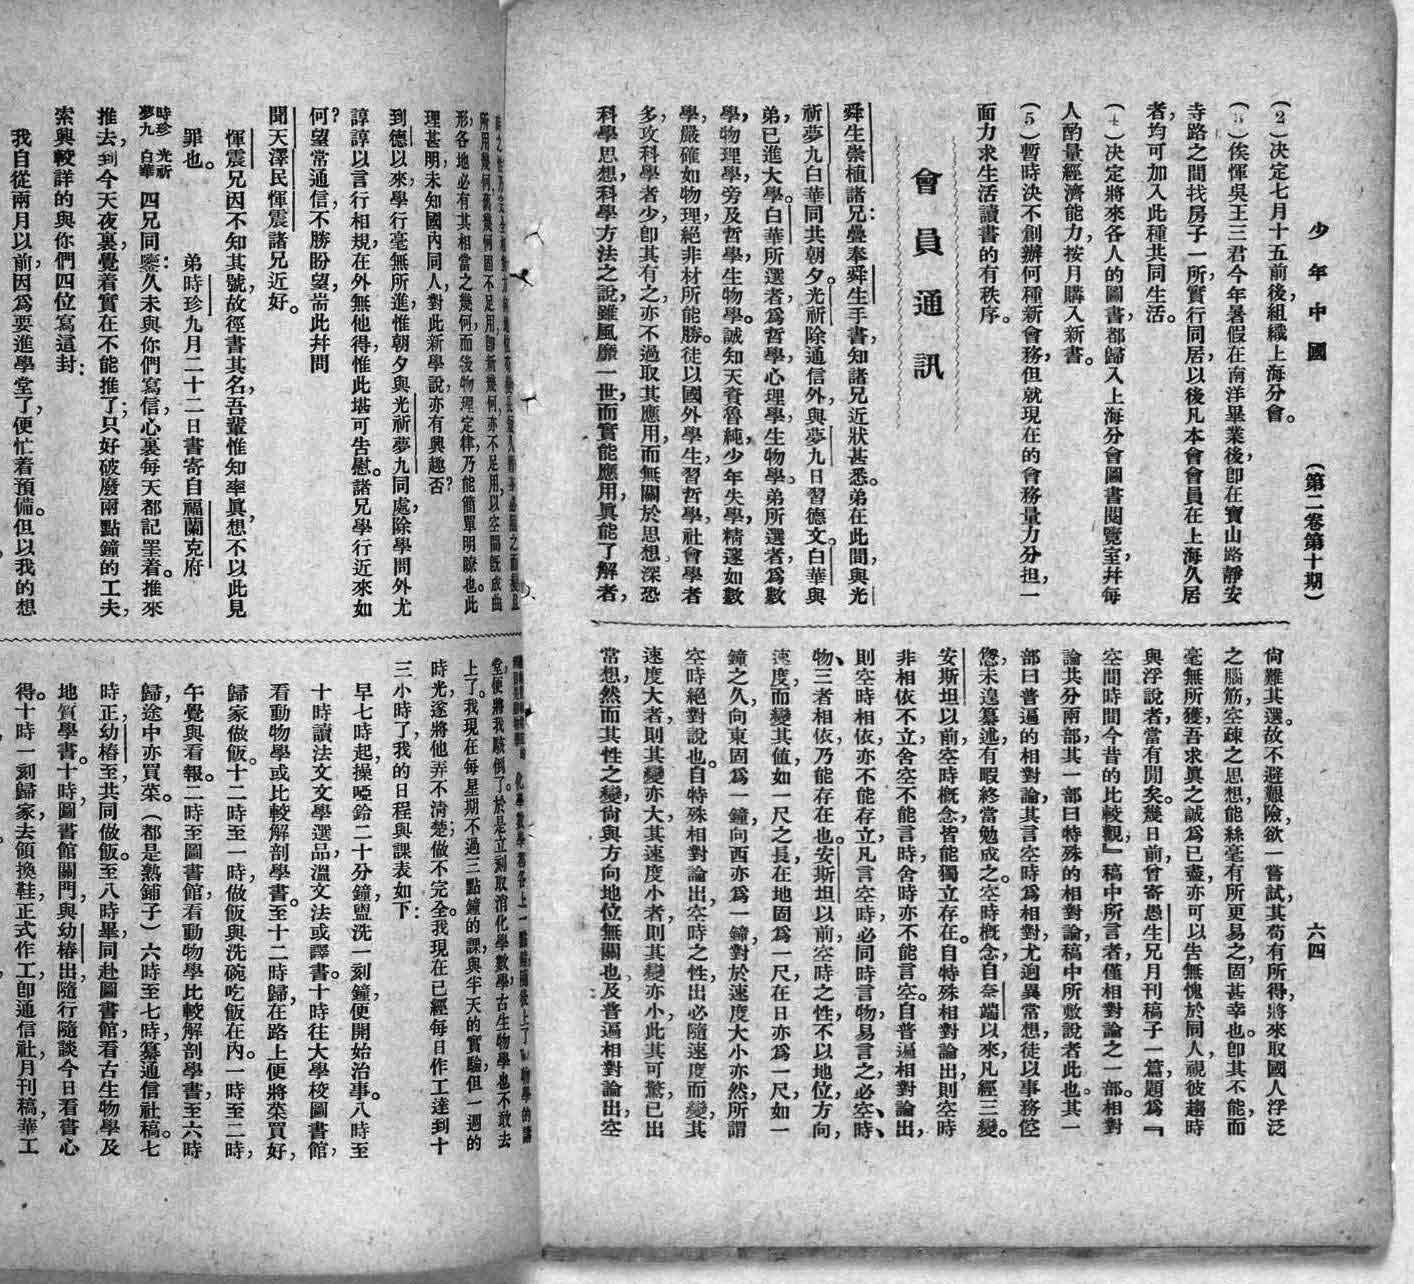 少年中國
(第二卷第十期)
六四
(2)決定七月十五前後,組織上海分會。
(3)俟惲吳王三君今年暑假在南洋畢業後,卽在寶山路靜安
寺路之間找房子一所,實行同居,以後凡本會會員在上海久居
者,均可加入此種共同生活。
(4)決定將來各人的圖書,都歸入上海分會圖書閱覽室,幷每
人酌量經濟能力,按月購入新書。
(5)暫時決不創辦何種新會務,但就現在的會務量力分担,一
面力求生活讀書的有秩序。
會員通訊
舜生崇植諸兄:疊奉舜生手書,知諸兄近狀甚悉。弟在此間,與光
祈夢九白華同共朝夕。光祈除通信外,與夢九日習德文。白華與
弟,已進大學。白華所選者,爲哲學,心理學,生物學。弟所選者,爲數
學,物理學,旁及哲學,生物學。誠知天資魯純,少年失學,精邃如數
學,嚴確如物理,絕非材所能勝。徒以國外學生,習哲學,社會學者
多,攻科學者少,卽其有之,亦不過取其應用,而無關於思想。深恐
科學思想,科學方法之說,雖風靡一世,而實能應用,眞能了解者,
尙難其選。故不避艱險,欲一嘗試,其苟有所得,將來取國人浮泛
之腦筋,空疎之思想,能絲毫有所更易之,固甚幸也。卽其不能,而
毫無所獲,吾求眞之誠,爲已盡,亦可以告無愧於同人,視彼趨時
與浮說者,當有閒矣。幾日前,曾寄愚生兄月刊稿子一篇,題爲『
空間時間今昔的比較觀』稿中所言者,僅相對論之一部。相對
論共分兩部,其一部曰特殊的相對論,稿中所敷說者此也。其一
部曰普遍的相對論,其言空時爲相對,尤逈異常想,徒以事務倥
傯,未遑纂述,有暇終當勉成之。空時概念,自奈端以來,凡經三變。
安斯坦以前,空時概念,皆能獨立存在。自特殊相對論出,則空時
非相依不立,舍空不能言時,舍時亦不能言空。自普遍相對論出,
則空時相依,亦不能存立,凡言空時,必同時言物,易言之,必空、時、
物、三者相依,乃能存在也。安斯坦以前,空時之性,不以地位,方向,
速度,而變其值,如一尺之長,在地固爲一尺,在日亦爲一尺,如一
鐘之久,向東固爲一鐘,向西亦爲一鐘,對於速度大小亦然,所謂
空時絕對說也。自特殊相對論出,空時之性,出必隨速度而變,其
速度大者,則其變亦大,其速度小者,則其變亦小,此其可驚,已出
常想,然而其性之變,尙與方向地位無關也,及普遍相對論出,空
所用幾何,舊幾何固不足用,卽新幾何,亦不足用,以空間旣成曲
形,各地必有其相當之幾何,而後物理定律,乃能簡單明瞭也。此
理甚明,未知國內同人,對此新學說,亦有興趣否?
到德以來,學行毫無所進,惟朝夕與光祈夢九同處,除學問外,尤
諄諄以言行相規,在外無他得,惟此堪可吿慰。諸兄學行近來如
何?望常通信,不勝盼望,耑此幷問
聞天澤民惲震諸兄近好。
惲震兄因不知其號,故徑書其名,吾輩惟知率眞,想不以此見
罪也。 弟時珍九月二十二日書寄自福蘭克府
時珍 光祈
夢九 白華 四兄同鑒:久未與你們寫信,心裏每天都記罣着。推來
推去,到今天夜裏,覺着實在不能推了;只好破廢兩點鐘的工夫,
索興較詳的與你們四位寫這封:
我自從兩月以前,因爲要進學堂了,便忙着預備。但以我的想
堂,便將我駭倒了。於是立刻取消化學數學,古生物學也不敢去
上了。我現在每星期不過三點鐘的課,與半天的實驗,但一週的
時光,遂將他弄不淸楚;做不完全。我現在已經每日作工達到十
三小時了,我的日程與課表如下:
早七時起,操啞鈴二十分鐘,盥洗一刻鐘,便開始治事。八時至
十時,讀法文文學選品,溫文法或譯書。十時往大學校圖書館,
看動物學,或比較解剖學書。至十二時歸,在路上便將菜買好,
歸家做飯。十二時至一時,做飯與洗碗吃飯在內。一時至二時,
午覺與看報。二時至圖書館,看動物學比較解剖學書,至六時
歸,途中亦買菜。(都是熟鋪子)六時至七時,纂通信社稿。七
時正,幼椿至,共同做飯。至八時,畢同赴圖書館,看古生物學及
地質學書。十時,圖書館關門,與幼椿出,隨行隨談今日看書心
得。十時一刻歸家,去領換鞋,正式作工,卽通信社,月刊稿,華工